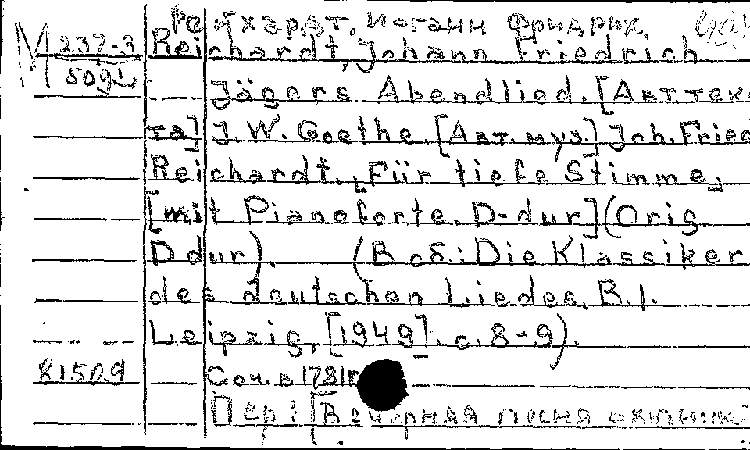 Рейхардт, Иоганн Фридрих.
М 237-3 Reichardt, Johann Friedrich
Jägers Abendlied. [Авт. текс
та] J. W. Goethe. [Авт. муз.] Joh. Fried
Reichardt. Für tiefe Stimme,
[mit Pianoforte. D-dur] (Orig.
D dur). (В сб.: Die Klassiker
des deutschen Liedes. B. I.
Leipzig, [1949]. с. 8-9).
81509 Соч. в 1781г
Пер.: [Вечерняя песня охотник